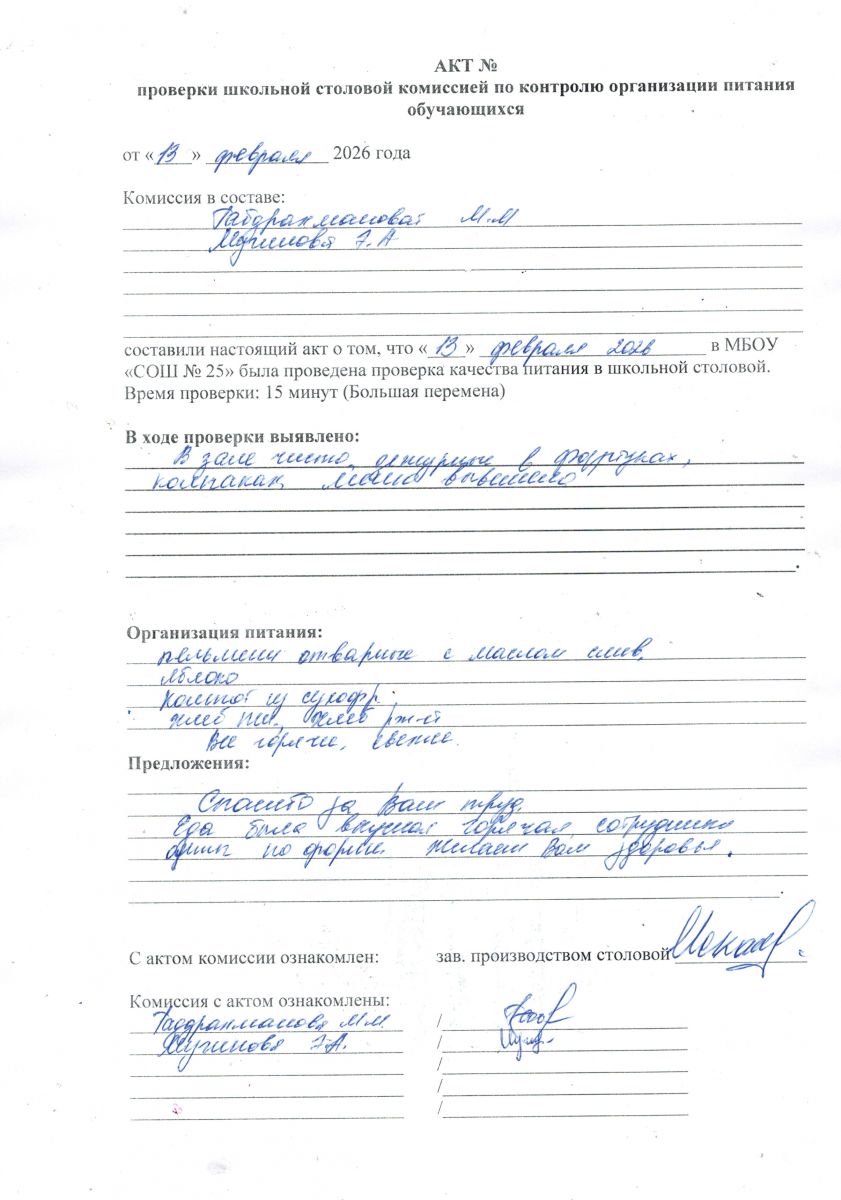 АКТ №
проверки школьной столовой комиссией по контролю организации питания
обучающихся
от «13» февраля 2026 года
Комиссия в составе:
Габдрахманова М.М
Э.А
составили настоящий акт о том, что «13» февраля 2026 в МБОУ
«СОШ № 25» была проведена проверка качества питания в школьной столовой.
Время проверки: 15 минут (Большая перемена)
В ходе проверки выявлено:
В зале чисто, дежурные в фартуках,
колпаках, меню вывешено
Организация питания:
пельмени отварные с маслом слив.
яблоко
компот из сухофр.
хлеб пш., хлеб рж-й
Все горячее, свежее.
Предложения:
Спасибо за Ваш труд.
Еда была вкусная горячая, сотрудники
одеты по форме. Желаем Вам здоровья.
С актом комиссии ознакомлен: зав. производством столовой
Комиссия с актом ознакомлены:
Габдрахманова М.М. /
Э.А. /
/
/
/